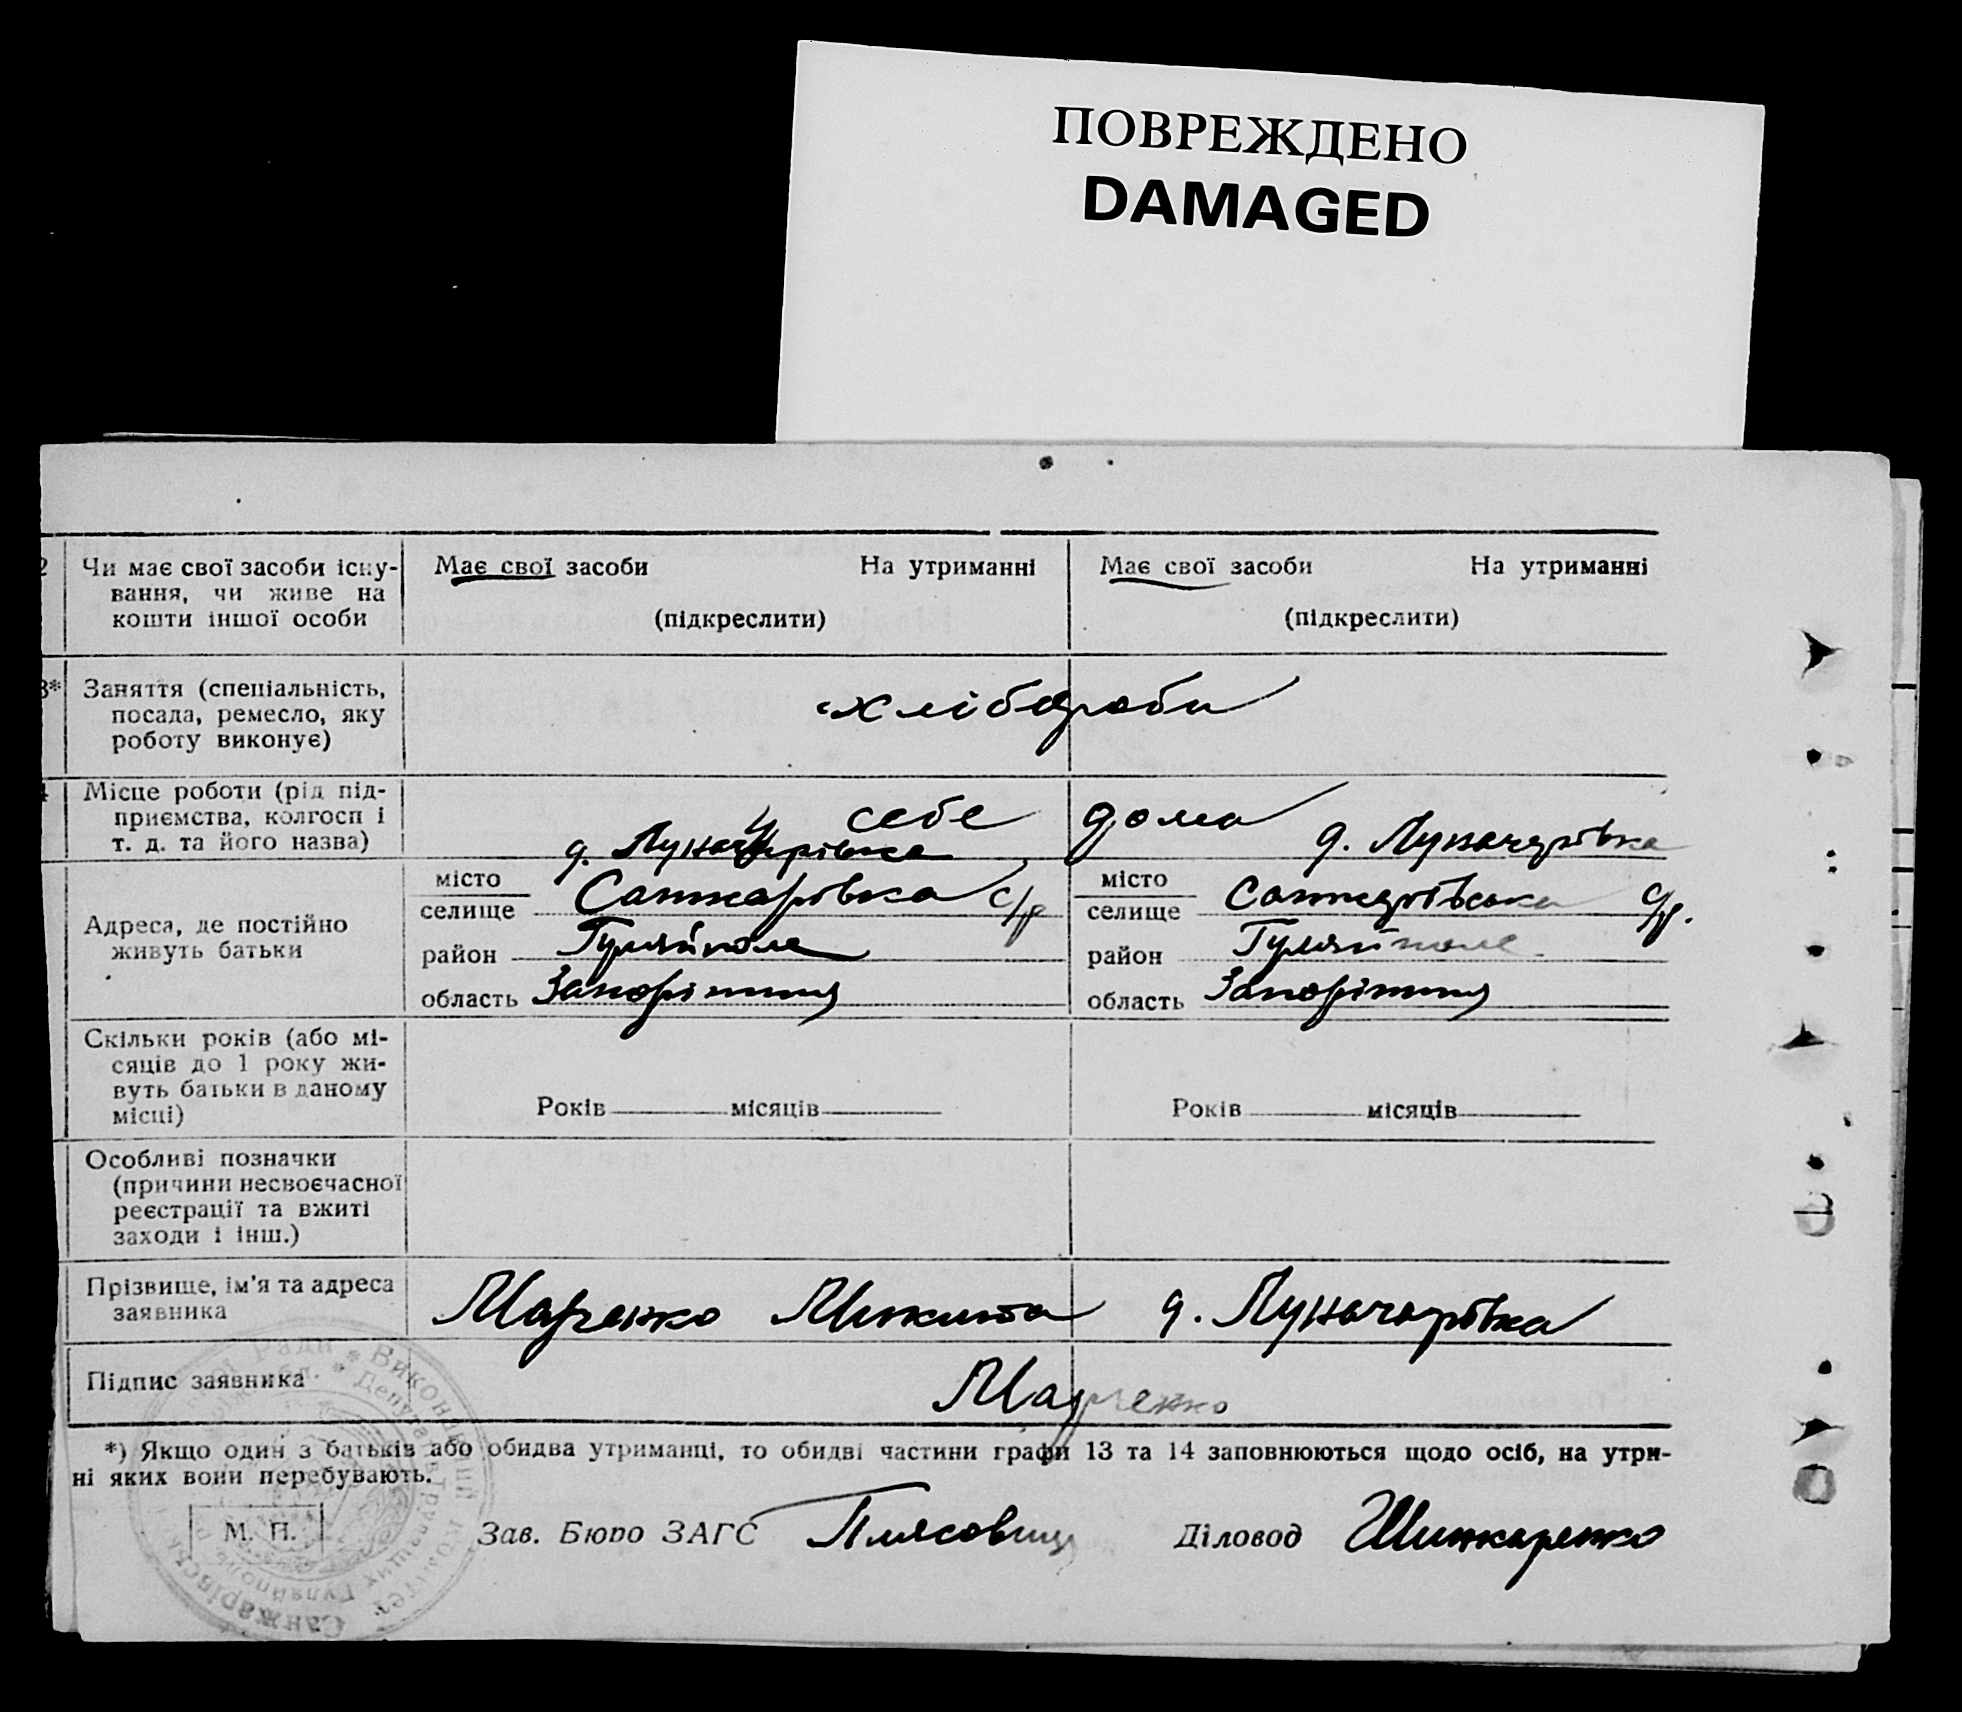 ПОВРЕЖДЕНО
DAMAGED
2 Чи має свої засоби існу-
вання, чи живе на
кошти іншої особи
Має свої засоби На утриманні
(підкреслити)
Має свої засоби На утриманні
(підкреслити)
3* Заняття (спеціальність,
посада, ремесло, яку
роботу виконує)
хлібороби
Місце роботи (рід під-
приємства, колгосп і
т. д. та його назва)
у себе дома
Адреса, де постійно
живуть батьки
д. Луначарівка
місто
селище Санжарівка с/р
район Гуляйполе
область Запоріжжя
д. Луначарівка
місто
селище Санжарівська с/р.
район Гуляйполе
область Запоріжжя
Скільки років (або мі-
сяців до 1 року жи-
вуть батьки в даному
місці)
Років місяців
Років місяців
Особливі позначки
(причини несвоєчасної
реєстрації та вжиті
заходи і інш.)
Прізвище, ім'я та адреса
заявника
Марченко Микита д. Луначарівка
Підпис заявника
Марченко
*) Якщо один з батьків або обидва утриманці, то обидві частини графи 13 та 14 заповнюються щодо осіб, на утри-
ні яких вони перебувають.
М. П.
Зав. Бюро ЗАГС
Діловод Шинкаренко
Виконавчий Комітет Санжарівської
Ради Депутатів Трудящих Гуляйпіль